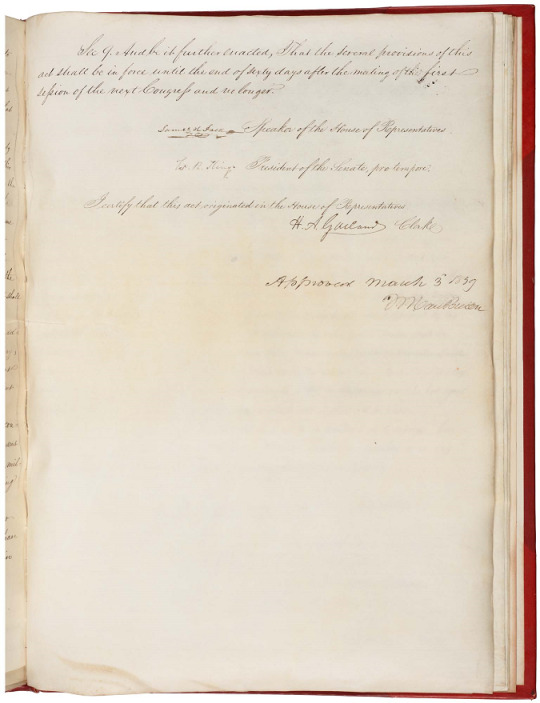 Sec 9. And be it further enacted, That the several provisions of this
act shall be in force until the end of sixty days after the meeting of the first
session of the next Congress and no longer.
James K Polk Speaker of the House of Representatives.
W. R. King President of the Senate, pro tempore.
I certify that this act originated in the House of Representatives
H. A. Garland Clerk
Approved March 3d 1839
M Van Buren